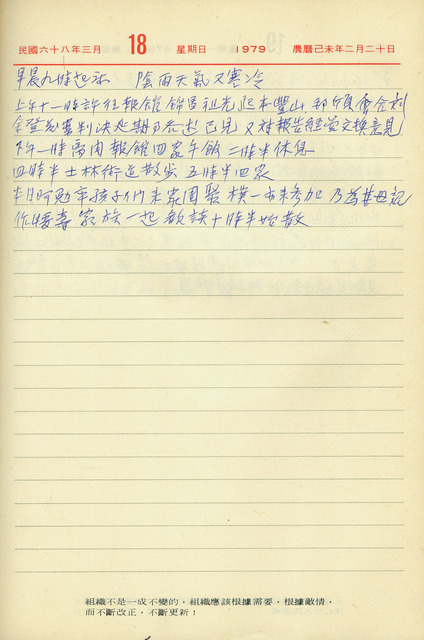 民國六十八年三月 18 星期日 1979 農曆己未年二月二十日
早晨九時起床 陰雨天氣又寒冷
上午十一時許往報館 館長祖光起本豐山
全登 判決延期 各述己見 又對報告 交換意見
下午一時離開報館回家午飯 二時半休息
四時半士林街道散步 五時半回家
本日阿勉率孩子們來家團聚 橫一亦來參加 乃為其母親
作暖壽 家族一起歡談十時半始散
組織不是一成不變的,組織應該根據需要,根據敵情,
而不斷改正,不斷更新!